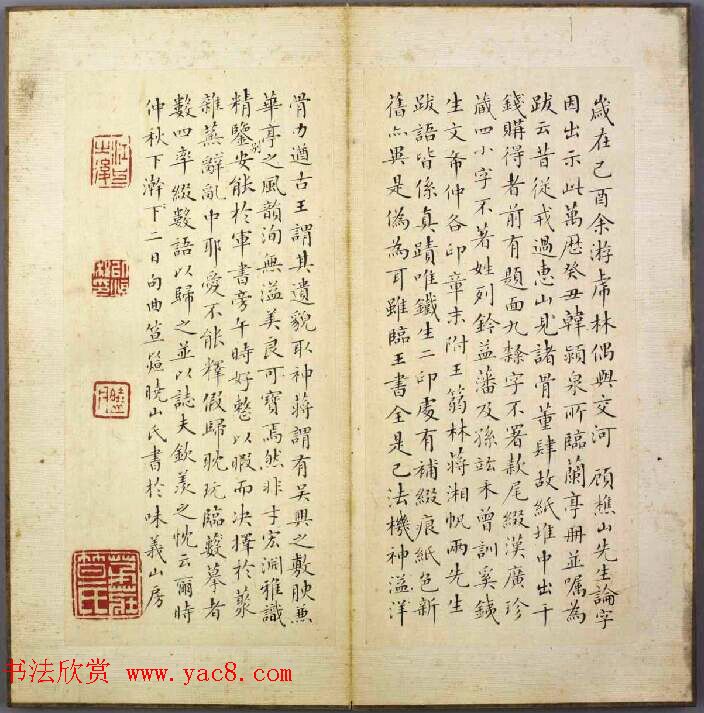 歲在己酉余游虎林偶與交河 顧樵山先生論字
因出示此萬歷癸丑韓穎泉所臨蘭亭冊並囑為
跋云昔從戎過惠山見諸骨董肆故紙堆中出千
錢購得者前有題面九隸字不署款尾綴漢廣珍
藏四小字不著姓列鈐益藩及孫竝禾曾訓奚銕
生文希仲各印章末附王蒻林蔣湘帆兩先生
跋語皆係真蹟唯鐵生二印處有補綴痕紙色新
舊亦異是偽為耳雖臨王書全是己法機神溢洋
骨力遒古王謂其遺貌取神蔣謂有吳興之敷腴兼
華亭之風韻洵無溢美良可寶焉然非于宏淵雅識
精鑒安能於軍書旁午時好整以暇而决擇於叢
雜蕪辭亂中耶愛不能釋假歸眈玩臨數摹者
數四率綴數語以歸之並以誌夫欽羨之忱云爾時
仲秋下澣下二日句曲笪 曉山氏書於味義山房
书法欣赏 www.yac8.com